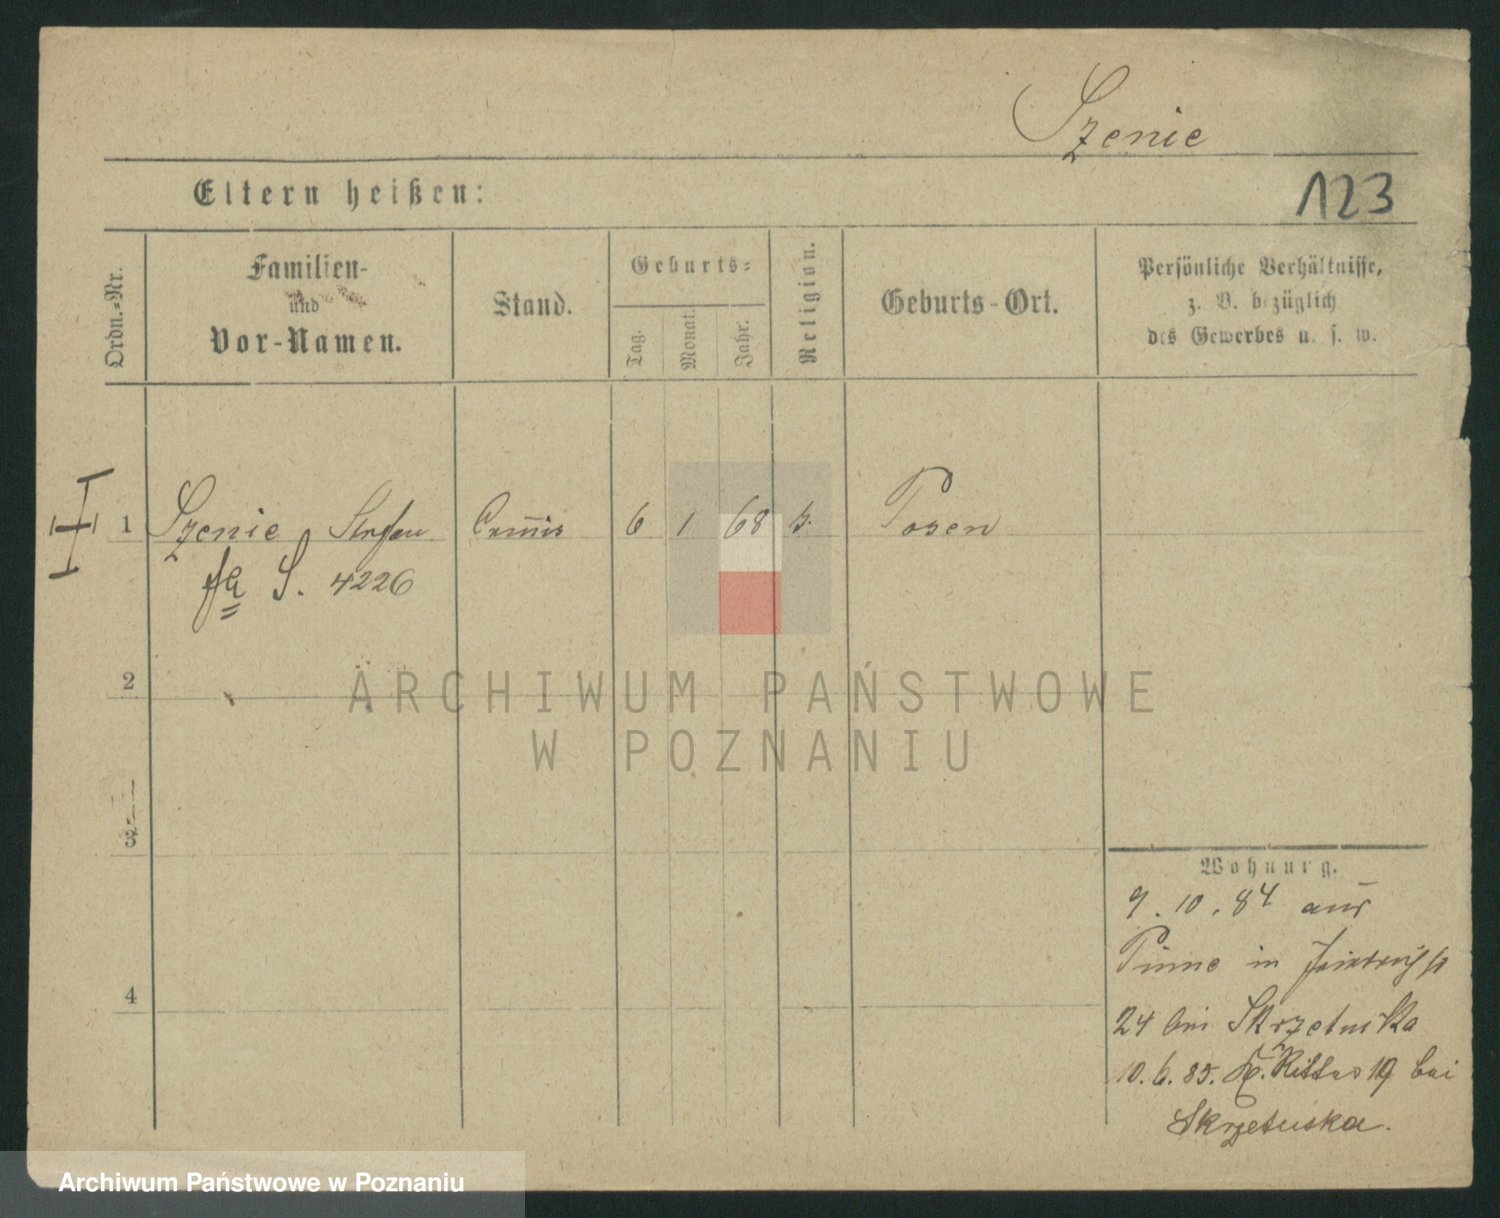 Szenic
Eltern heißen:
123
Ordn.-Nr.
Familien-
und
Vor-Namen.
Stand.
Geburts-
Tag.
Monat.
Jahr.
Religion.
Geburts-Ort.
Persönliche Verhältnisse,
z. B. bezüglich
des Gewerbes u. s. w.
1 Szenic Stefan Commis 6 1 68 Posen
S. 4226
2
ARCHIWUM PAŃSTWOWE
W POZNANIU
3
4
Wohnung.
9.10.84 aus
Pinne in
24 bei Skrzetuska
10.6.85. Kl. Ritters 19 bei
Skrzetuska.
Archiwum Państwowe w Poznaniu